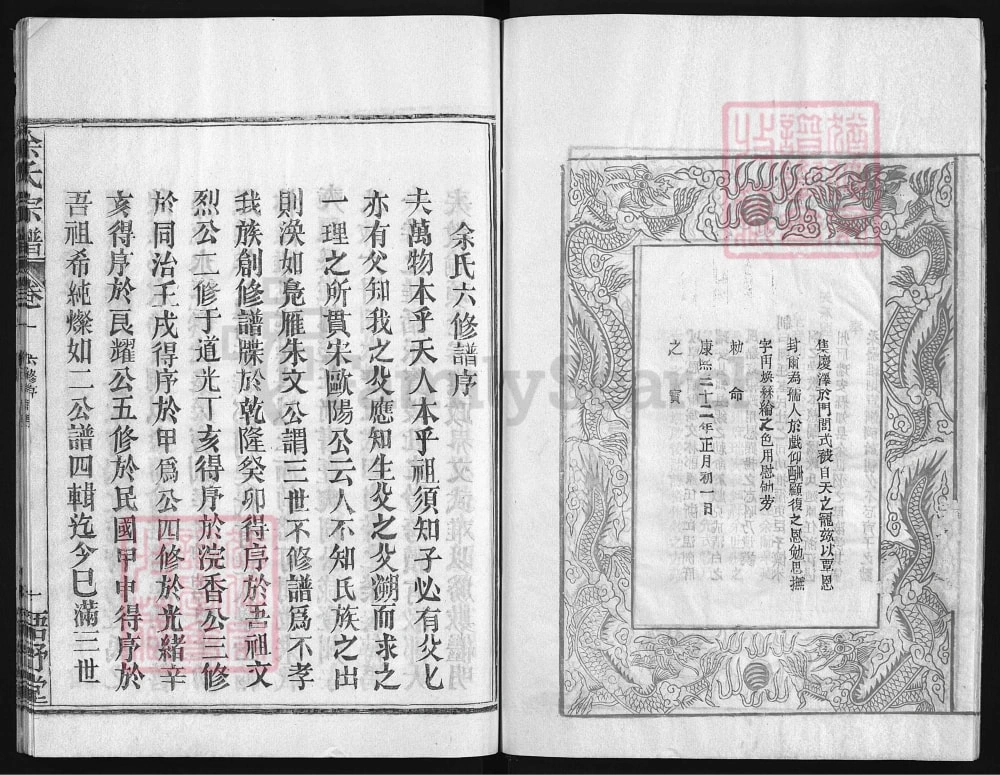 隻慶澤於門閭式被自天之寵茲以覃恩
封爾為孺人於戲仰酬顧復之恩勉思撫
字丙煥絲綸之色用慰劬勞
勅命
康熙二十二年正月初一日
之寶
余氏六修譜序
夫萬物本乎天人本乎祖須知子必有父父
亦有父知我之父應知生父之父溯而求之
一理之所貫宋歐陽公云人不知氏族之出
則渙如鳧雁朱文公謂三世不修譜爲不孝
我族創修譜牒於乾隆癸卯得序於吾祖文
烈公二修于道光丁亥得序於浣香公三修
於同治壬戌得序於甲爲公四修於光緒辛
亥得序於艮耀公五修於民國甲申得序於
吾祖希純燦如二公譜四輯迄今已滿三世
余氏宗譜
卷一
六修序
一
FamilySearch